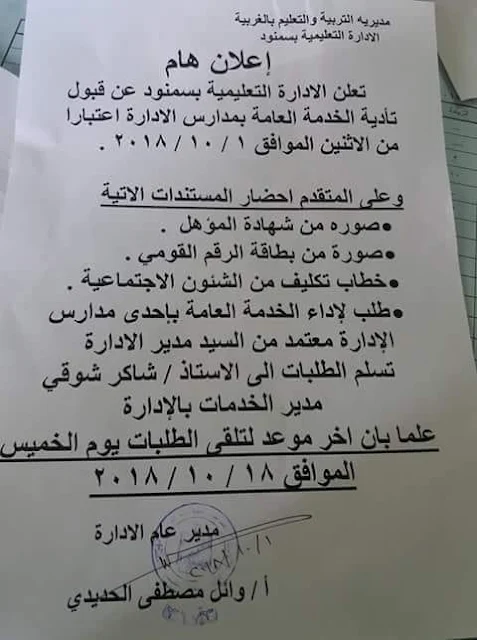 مديريه التربية والتعليم بالغربية
الادارة التعليمية بسمنود
إعلان هام
تعلن الادارة التعليمية بسمنود عن قبول
تأدية الخدمة العامة بمدارس الادارة اعتبارا
من الاثنين الموافق ١ / ١٠ / ٢٠١٨ .
وعلى المتقدم احضار المستندات الاتية
•صوره من شهادة المؤهل .
•صورة من بطاقة الرقم القومي .
•خطاب تكليف من الشئون الاجتماعية .
•طلب لإداء الخدمة العامة بإحدى مدارس
الإدارة معتمد من السيد مدير الادارة
تسلم الطلبات الى الاستاذ / شاكر شوقي
مدير الخدمات بالإدارة
علما بان اخر موعد لتلقى الطلبات يوم الخميس
الموافق ١٨ / ١٠ / ٢٠١٨
مدير عام الادارة
أ / وائل مصطفى الحديدي